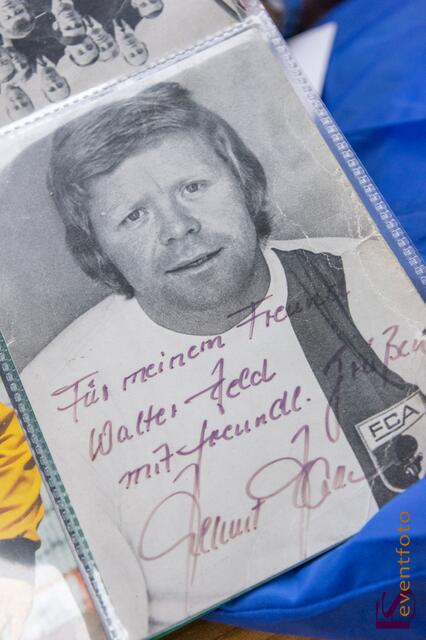 Für meinem Freund
Walter Feld
mit freundl. Grüßen
Helmut Haller
FCA
eventfoto